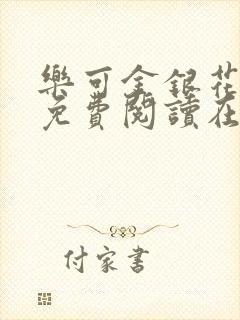 樂可金銀花
免費閱讀在
付家書